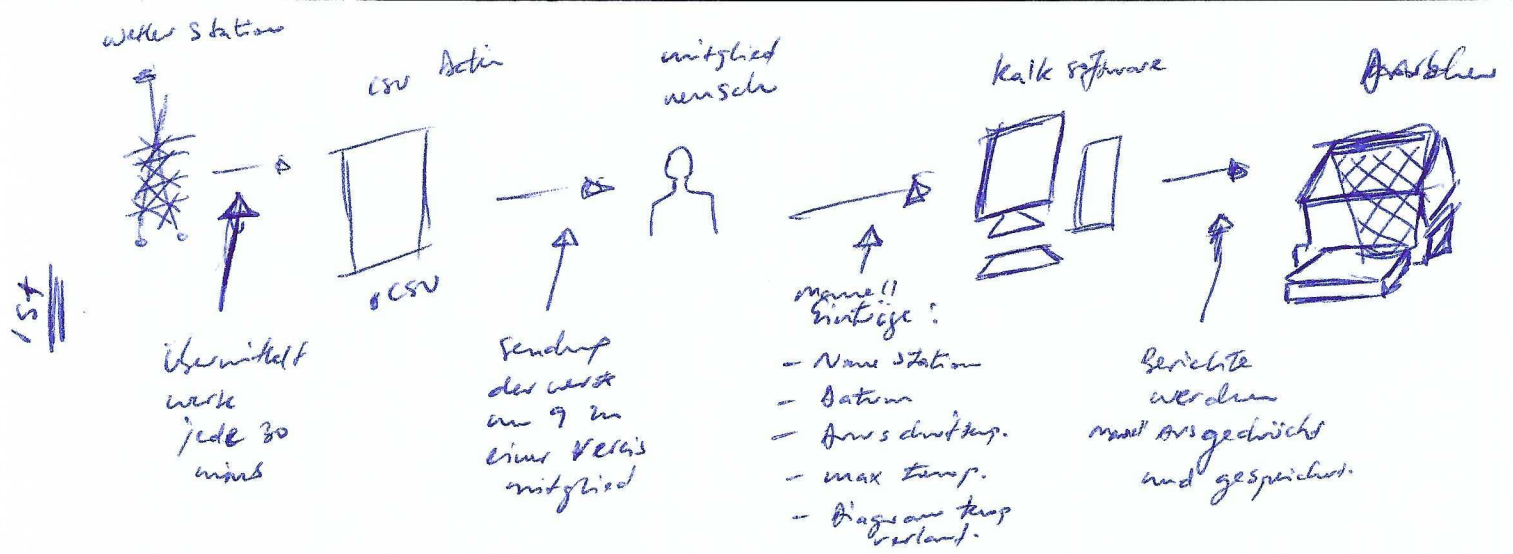 wetter Station
CSV Datei
mitglied
mensch
Kalk software
.CSV
Ist
übermittelt
werte
jede 30
mins
Sendung
der werte
um 9 zu
einer Vereins
mitglied
manuell
Einträge :
- Name Station
- Datum
- Durschnittemp.
- max temp.
- Diagram temp
verlauf.
Berichte
werden
Ausgedrückt
und gespeichert.